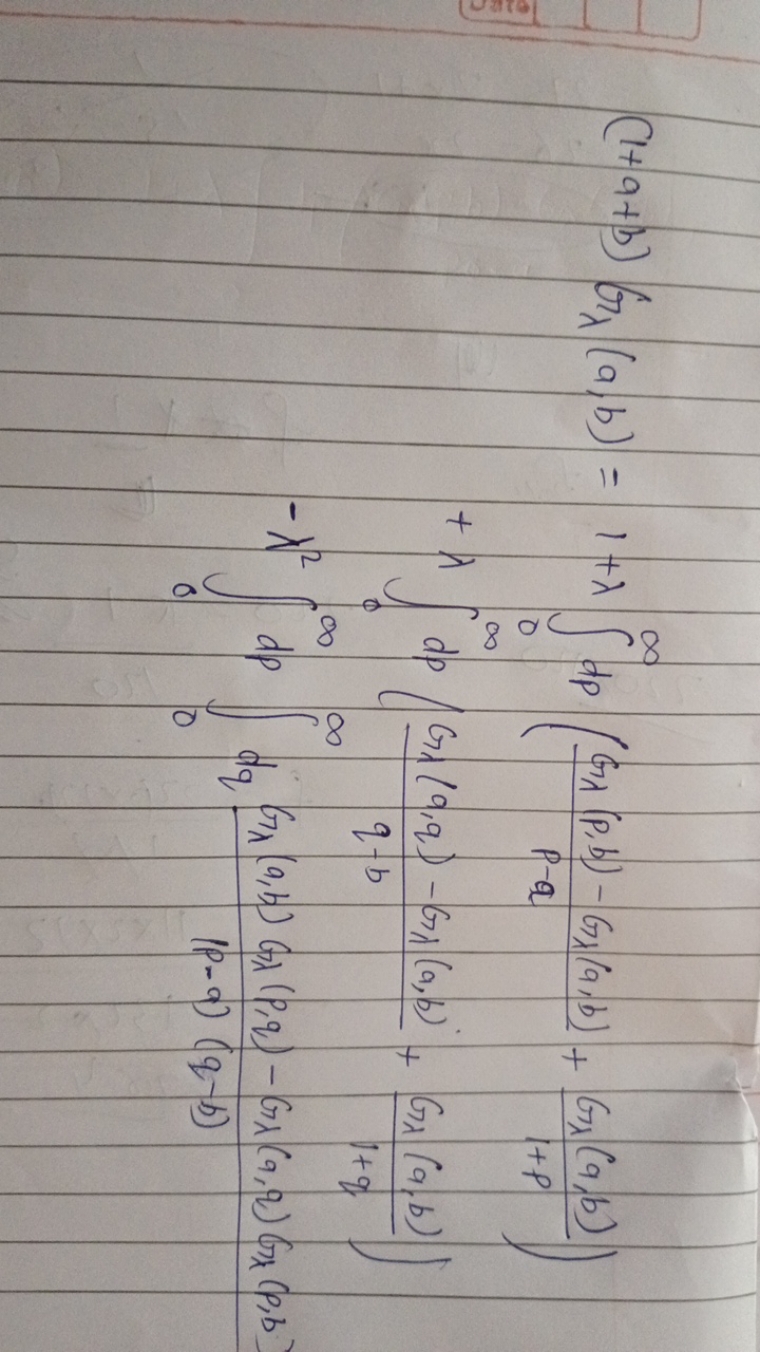 Date
(1+a+b) Gλ (a,b) = 1+λ ∫₀^∞ dp ( (Gλ (p,b) – Gλ (a,b))/(p-a) + (Gλ (a,b))/(1+p) )
+ λ ∫₀^∞ dp ( (Gλ (a,q) – Gλ (a,b))/(q-b) + (Gλ (a,b))/(1+q) )
- λ² ∫₀^∞ dp ∫₀^∞ dq (Gλ (a,b) Gλ (p,q) – Gλ (a,q) Gλ (p,b)/((p-a) (q-b))